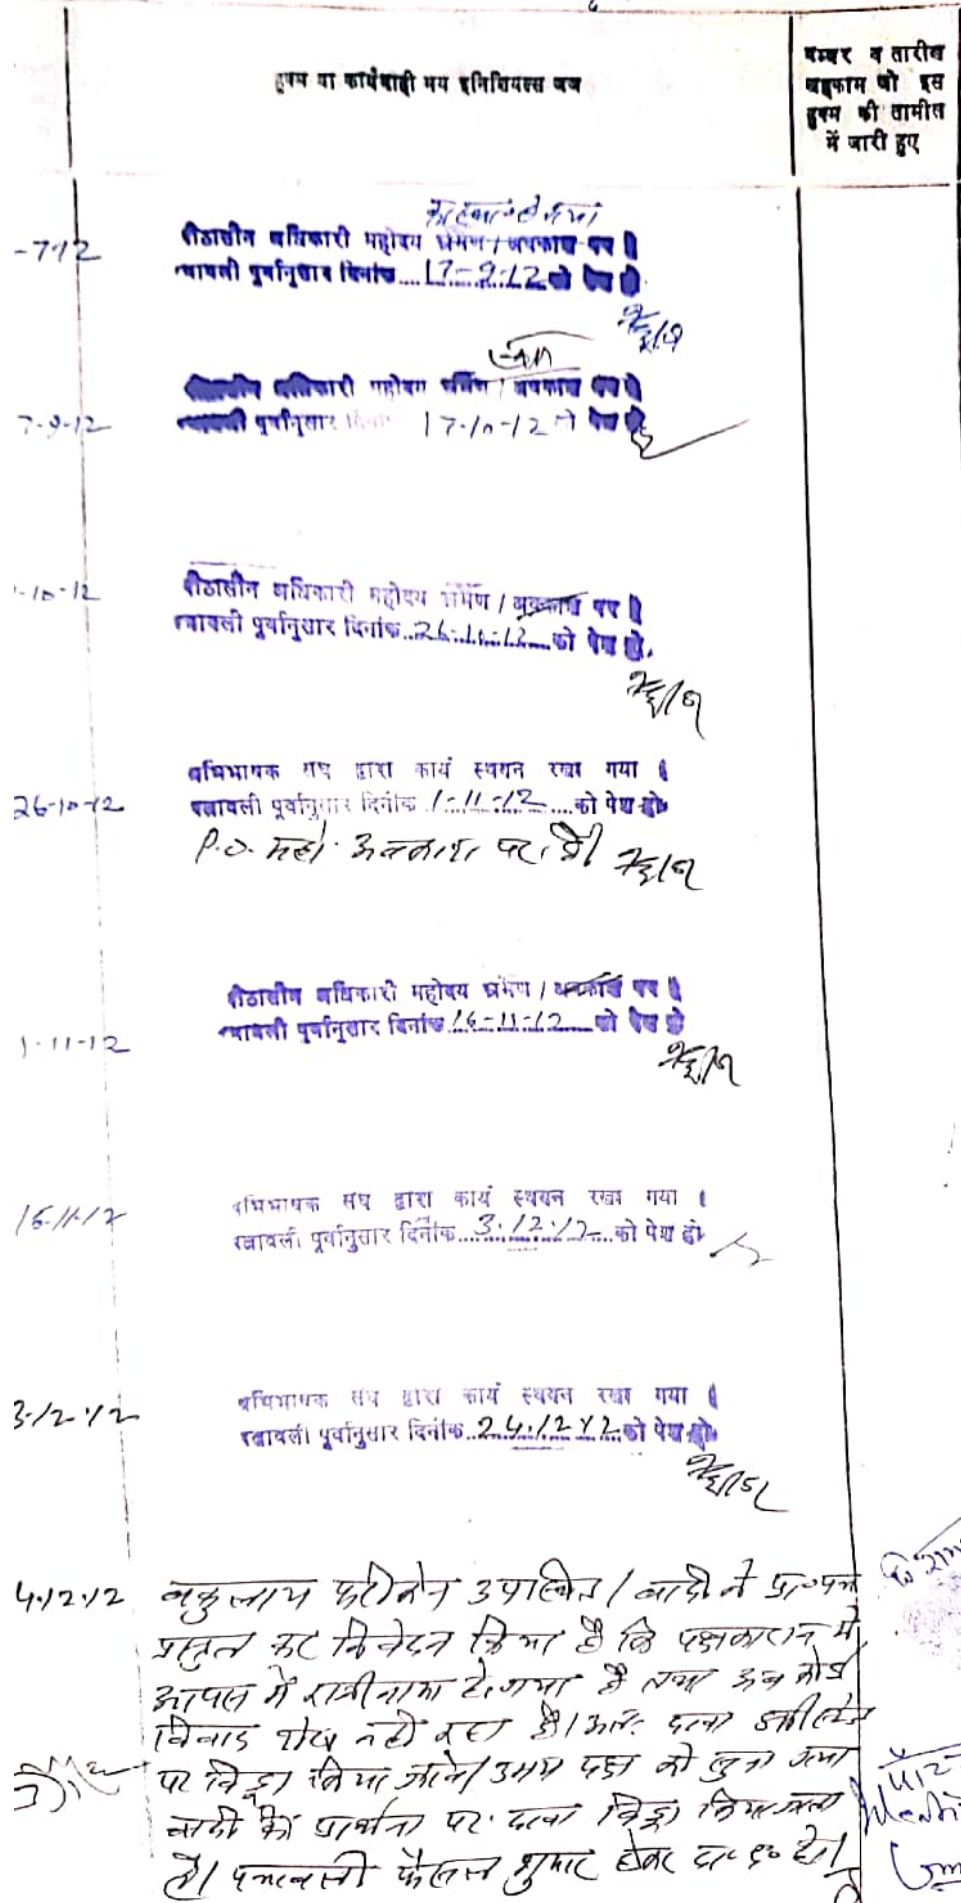 हुक्म या कार्यवाही मय इनिशियल्स जज
नम्बर व तारीख
अहकाम जो इस
हुक्म की तामील
में जारी हुए
-7-12
पीठासीन अधिकारी महोदय भ्रमण / अवकाश पर है
पत्रावली पूर्वानुसार दिनांक 17-9-12 को पेश हो
पीठासीन अधिकारी महोदय भ्रमण / अवकाश पर है
7-9-12
पत्रावली पूर्वानुसार दिनांक 17-10-12 को पेश हो
-10-12
पीठासीन अधिकारी महोदय भ्रमण / अवकाश पर है
पत्रावली पूर्वानुसार दिनांक 26-10-12 को पेश हो.
अभिभाषक संघ द्वारा कार्य स्थगन रखा गया ।
26-10-12
पत्रावली पूर्वानुसार दिनांक 1-11-12 को पेश हो
P.O. महो. अवकाश पर है।
पीठासीन अधिकारी महोदय भ्रमण / अवकाश पर है
1-11-12
पत्रावली पूर्वानुसार दिनांक 16-11-12 को पेश हो
16-11-12
अभिभाषक संघ द्वारा कार्य स्थगन रखा गया ।
पत्रावली पूर्वानुसार दिनांक 3.12.12 को पेश हो
3-12-12
अभिभाषक संघ द्वारा कार्य स्थगन रखा गया ।
पत्रावली पूर्वानुसार दिनांक 24.12.12 को पेश हो
4.12.12
वकुलाय फरीकेन उपस्थित / वादी ने प्रा०पत्र
प्रस्तुत कर निवेदन किया है कि पक्षकारान में
आपस में राजीनामा हो गया है तथा अब कोई
विवाद शेष नही रहा है। अतः दावा
पर विड्रा किया जावे। उभय पक्ष को सुना गया
वादी की प्रार्थना पर दावा विड्रा किया जाता
है। पत्रावली फैसल शुमार होकर दा० द० हो।